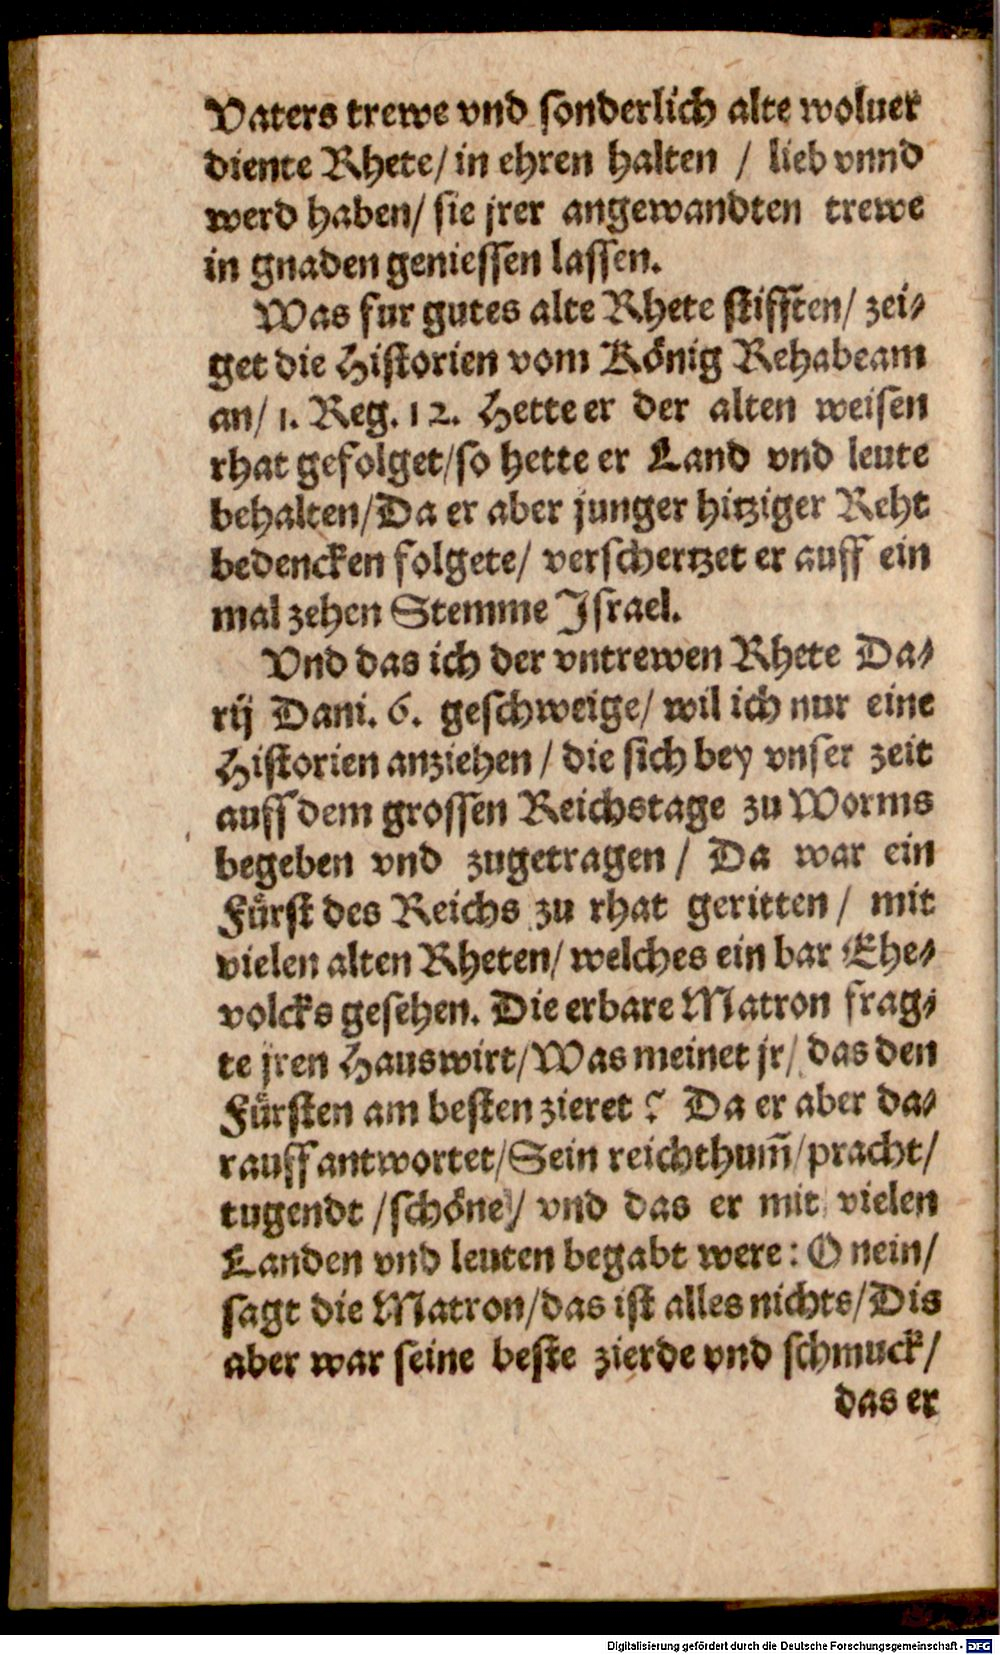 Vaters trewe vnd sonderlich alte woluer
diente Rhete/ in ehren halten / lieb vnnd
werd haben/ sie jrer angewandten trewe
in gnaden geniessen lassen.
Was fur gutes alte Rhete stifften/ zei-
get die Historien vom König Rehabeam
an/ 1. Reg. 12. Hette er der alten weisen
rhat gefolget/ so hette er Land vnd leute
behalten/ Da er aber junger hitziger Reht
bedencken folgete/ verschertzet er auff ein
mal zehen Stemme Israel.
Vnd das ich der vntrewen Rhete Da-
rij Dani. 6. geschweige/ wil ich nur eine
Historien anziehen / die sich bey vnser zeit
auff dem grossen Reichstage zu Worms
begeben vnd zugetragen / Da war ein
Fürst des Reichs zu rhat geritten / mit
vielen alten Rheten/ welches ein bar Ehe-
volcks gesehen. Die erbare Matron frag-
te jren Hauswirt/ Was meinet jr/ das den
Fürsten am besten zieret ? Da er aber da-
rauff antwortet/ Sein reichthum̃/ pracht/
tugendt / schöne / vnd das er mit vielen
Landen vnd leuten begabt were : O nein/
sagt die Matron/ das ist alles nichts/ Dis
aber war seine beste zierde vnd schmuck/
das er
Digitalisierung gefördert durch die Deutsche Forschungsgemeinschaft - DFG